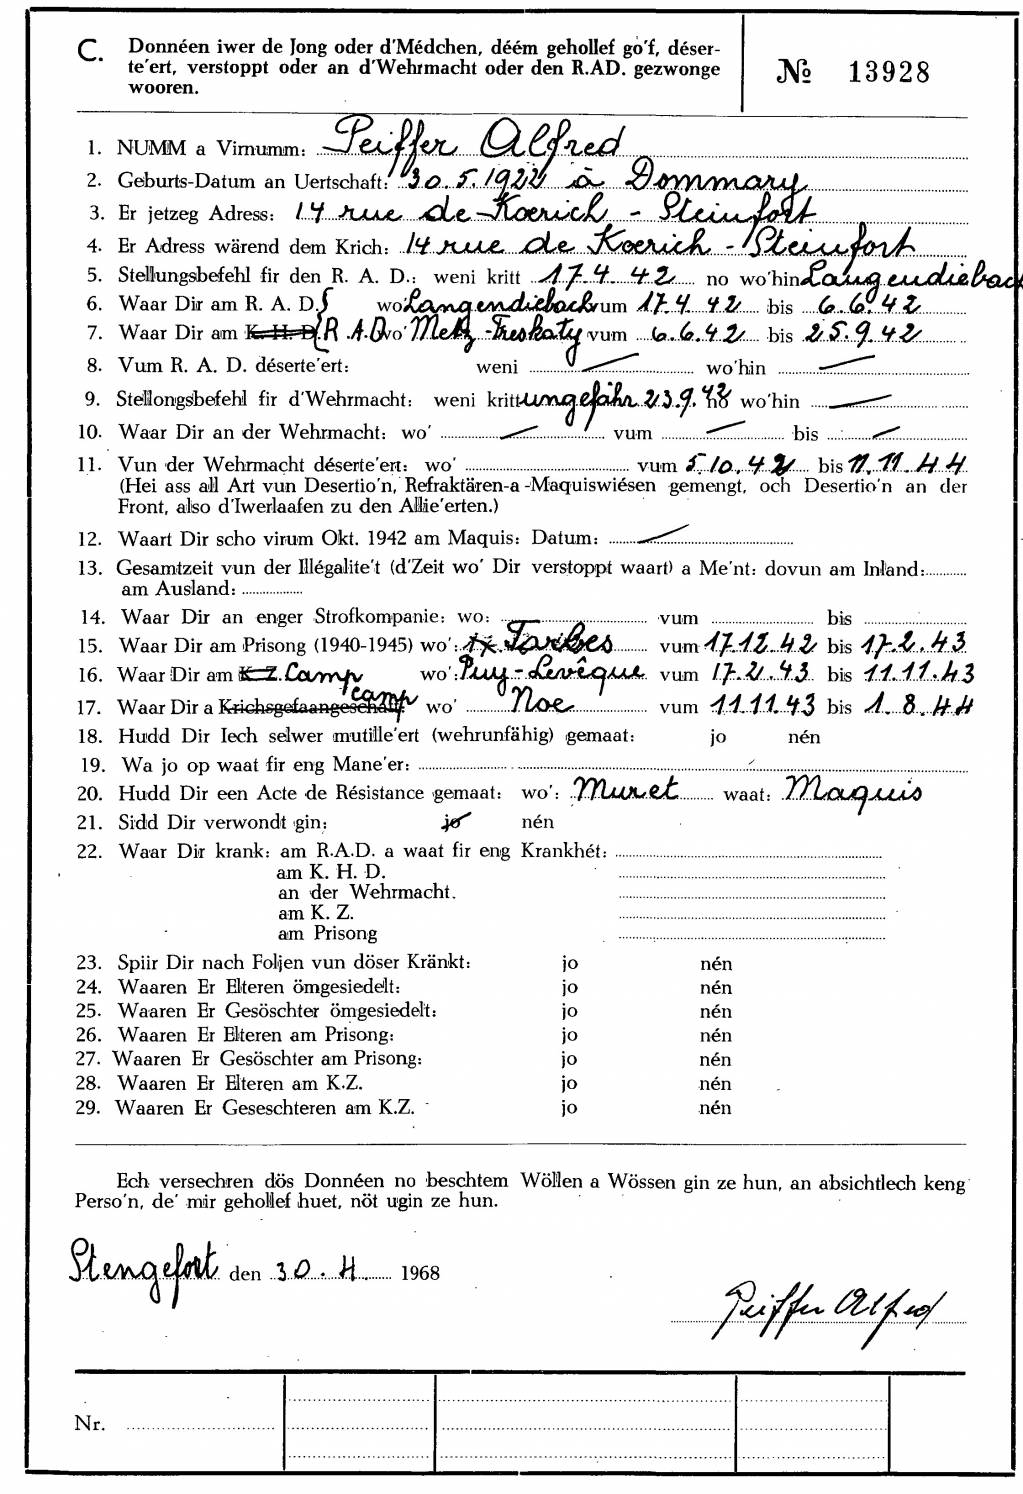 C. Donnéen iwer de Jong oder d'Médchen, déém gehollef go'f, déser-
te'ert, verstoppt oder an d'Wehrmacht oder den R.AD. gezwonge
wooren.
№ 13928
1. NUMM a Virnumm: Peiffer Alfred
2. Geburts-Datum an Uertschaft: 30.5.1922 à Dommary
3. Er jetzeg Adress: 14 rue de Koerich - Steinfort
4. Er Adress wärend dem Krich: 14 rue de Koerich - Steinfort
5. Stellungsbefehl fir den R. A. D.: weni kritt 17.4.42 no wo'hin Langendiebach
6. Waar Dir am R. A. D. wo' Langendiebach vum 17.4.42 bis 6.6.42
7. Waar Dir am K. H. D. R.A.D wo' Metz-Freskaty vum 6.6.42 bis 25.9.42
8. Vum R. A. D. déserte'ert: weni wo'hin
9. Stellongsbefehl fir d'Wehrmacht: weni kritt ungefähr 23.9.42 no wo'hin
10. Waar Dir an der Wehrmacht: wo' vum bis
11. Vun der Wehrmacht déserte'ert: wo' vum 5.10.42 bis 11.11.44
(Hei ass all Art vun Desertio'n, Refraktären-a-Maquiswiésen gemengt, och Desertio'n an der
Front, also d'Iwerlaafen zu den Allie'erten.)
12. Waart Dir scho virum Okt. 1942 am Maquis: Datum:
13. Gesamtzeit vun der Illégalite't (d'Zeit wo' Dir verstoppt waart) a Me'nt: dovun am Inland:
am Ausland:
14. Waar Dir an enger Strofkompanie: wo: vum bis
15. Waar Dir am Prisong (1940-1945) wo': Tarbes vum 17.12.42 bis 17.2.43
16. Waar Dir am K.Z. Camp wo': Puy-Levêque vum 17.2.43 bis 11.11.43
17. Waar Dir a Krichsgefaangeschaft camp wo' Noe vum 11.11.43 bis 1.8.44
18. Hudd Dir Iech selwer mutille'ert (wehrunfähig) gemaat: jo nén
19. Wa jo op waat fir eng Mane'er:
20. Hudd Dir een Acte de Résistance gemaat: wo': Muret waat: Maquis
21. Sidd Dir verwondt gin: jo nén
22. Waar Dir krank: am R.A.D. a waat fir eng Krankhét:
am K. H. D.
an der Wehrmacht.
am K. Z.
am Prisong
23. Spiir Dir nach Foljen vun döser Kränkt: jo nén
24. Waaren Er Elteren ömgesiedelt: jo nén
25. Waaren Er Gesöschter ömgesiedelt: jo nén
26. Waaren Er Elteren am Prisong: jo nén
27. Waaren Er Gesöschter am Prisong: jo nén
28. Waaren Er Elteren am K.Z. jo nén
29. Waaren Er Geseschteren am K.Z. jo nén
Ech versechren dös Donnéen no beschtem Wöllen a Wössen gin ze hun, an absichtlech keng
Perso'n, de' mir gehollef huet, nöt ugin ze hun.
Stengefort den 30.4. 1968
Peiffer Alfred
Nr.